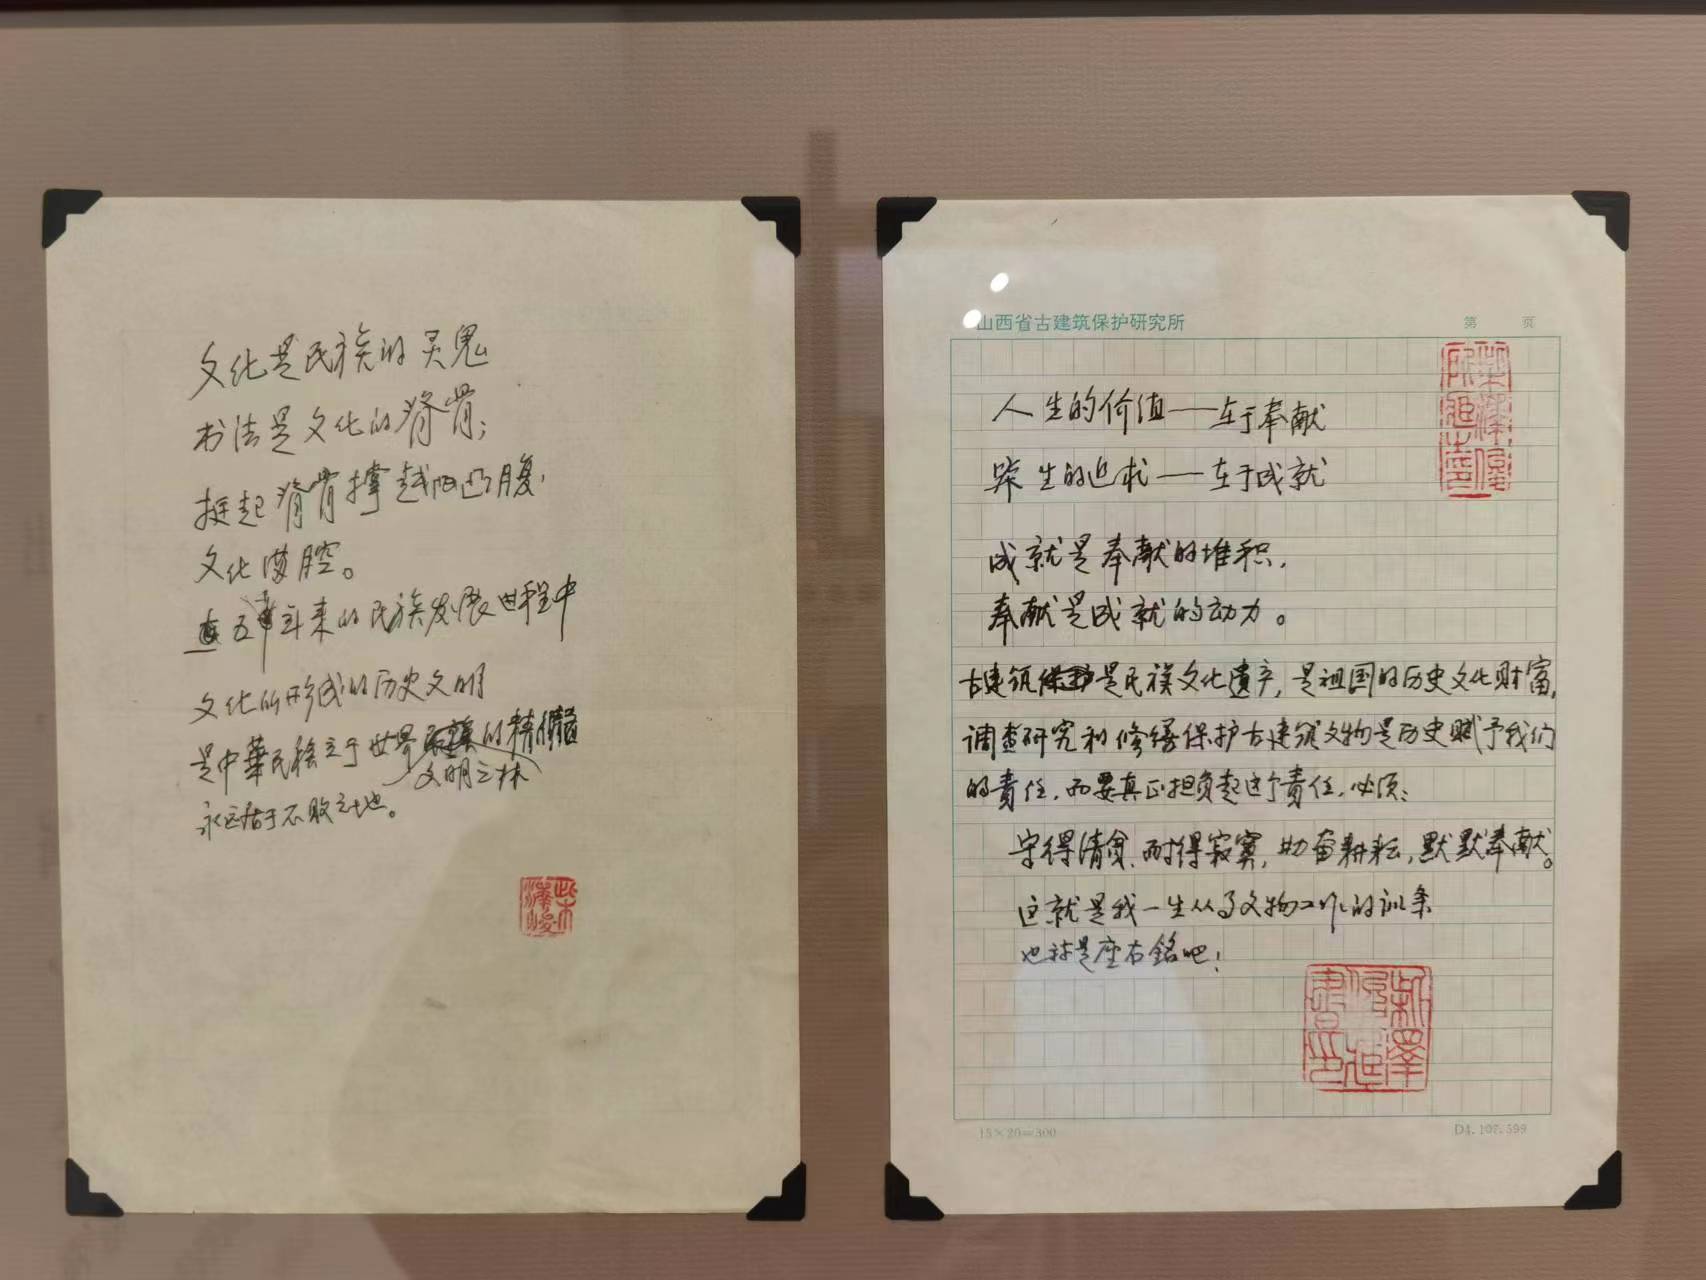 文化是民族的灵鬼
书法是文化的脊骨；
挺起脊骨撑越凹凸腹，
文化满腔。
五千年来的民族发展过程中
文化所形成的历史文明
是中華民族立于世界的精
文明之林
永远站于不败之地。
柴澤俊
山西省古建筑保护研究所
第 页
人生的价值——在于奉献
毕生的追求——在于成就
成就是奉献的堆积，
奉献是成就的动力。
古建筑是民族文化遗产，是祖国的历史文化财富，
调查研究和修缮保护古建筑文物是历史赋予我们
的责任，而要真正担负起这个责任，必须：
守得清贫、耐得寂寞，勤奋耕耘，默默奉献。
这就是我一生从事文物工作的训条
也就是座右銘吧！
15×20=300
D4.107.599